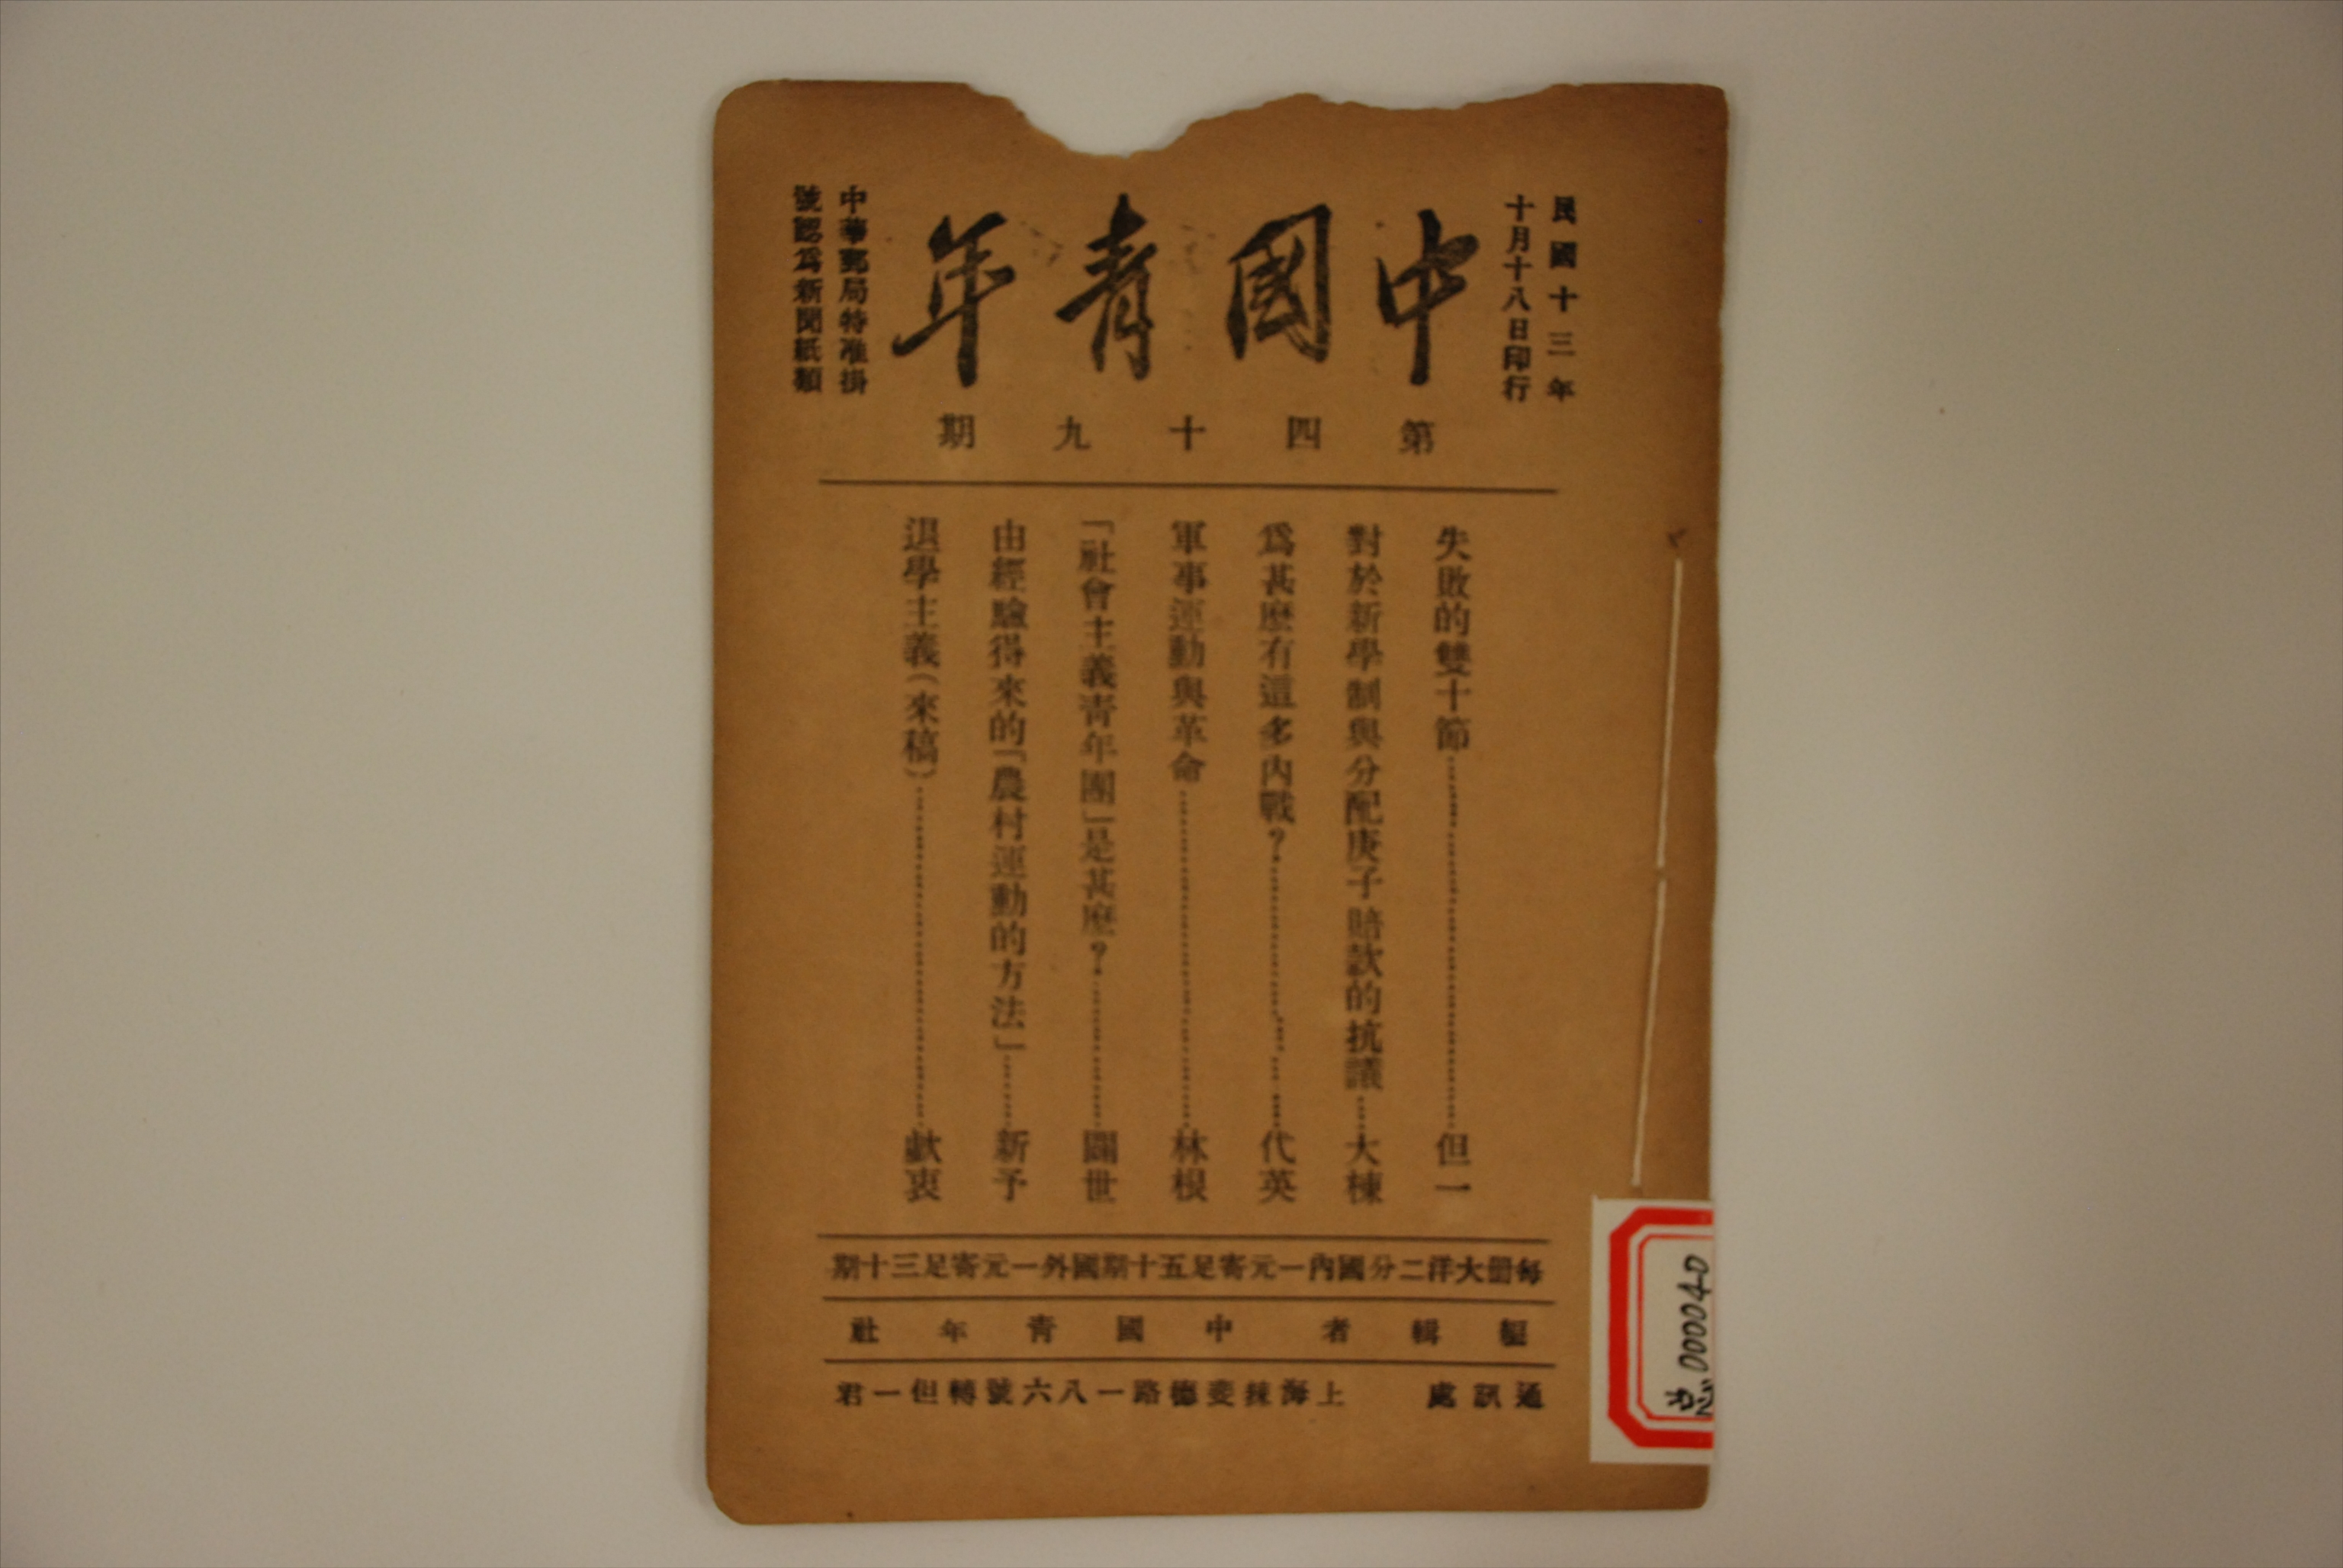 民國十三年
十月十八日印行
中國青年
中華郵局特准掛
號認爲新聞紙類
第四十九期
失敗的雙十節……但一
對於新學制與分配庚子賠款的抗議……大楝
爲甚麽有這多內戰?……代英
軍事運動與革命……林根
「社會主義青年團」是甚麽?……闢世
由經驗得來的「農村運動的方法」……新予
退學主義(來稿)……獻衷
每冊大洋二分國內一元寄足五十期國外一元寄足三十期
編輯者 中國青年社
通訊處 上海辣斐德路一八六號轉但一君
000040